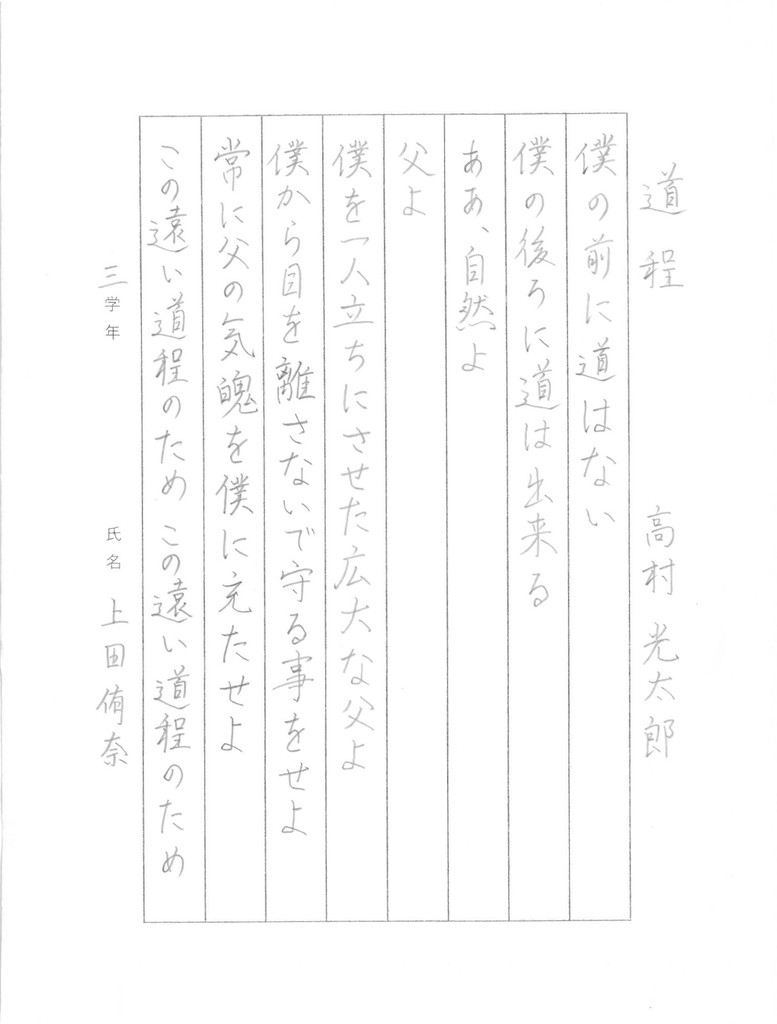 道程 高村光太郎
僕の前に道はない
僕の後ろに道は出来る
ああ、自然よ
父よ
僕を一人立ちにさせた広大な父よ
僕から目を離さないで守る事をせよ
常に父の気魄を僕に充たせよ
この遠い道程のため この遠い道程のため
三学年 氏名 上田侑奈